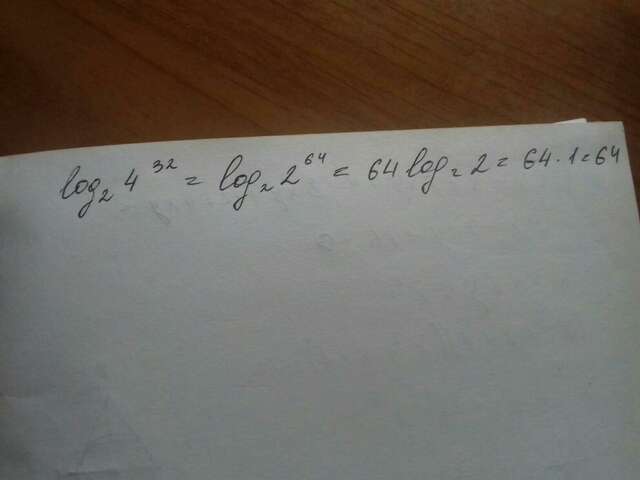 log₂ 4³² = log₂ 2⁶⁴ = 64 log₂ 2 = 64 · 1 = 64